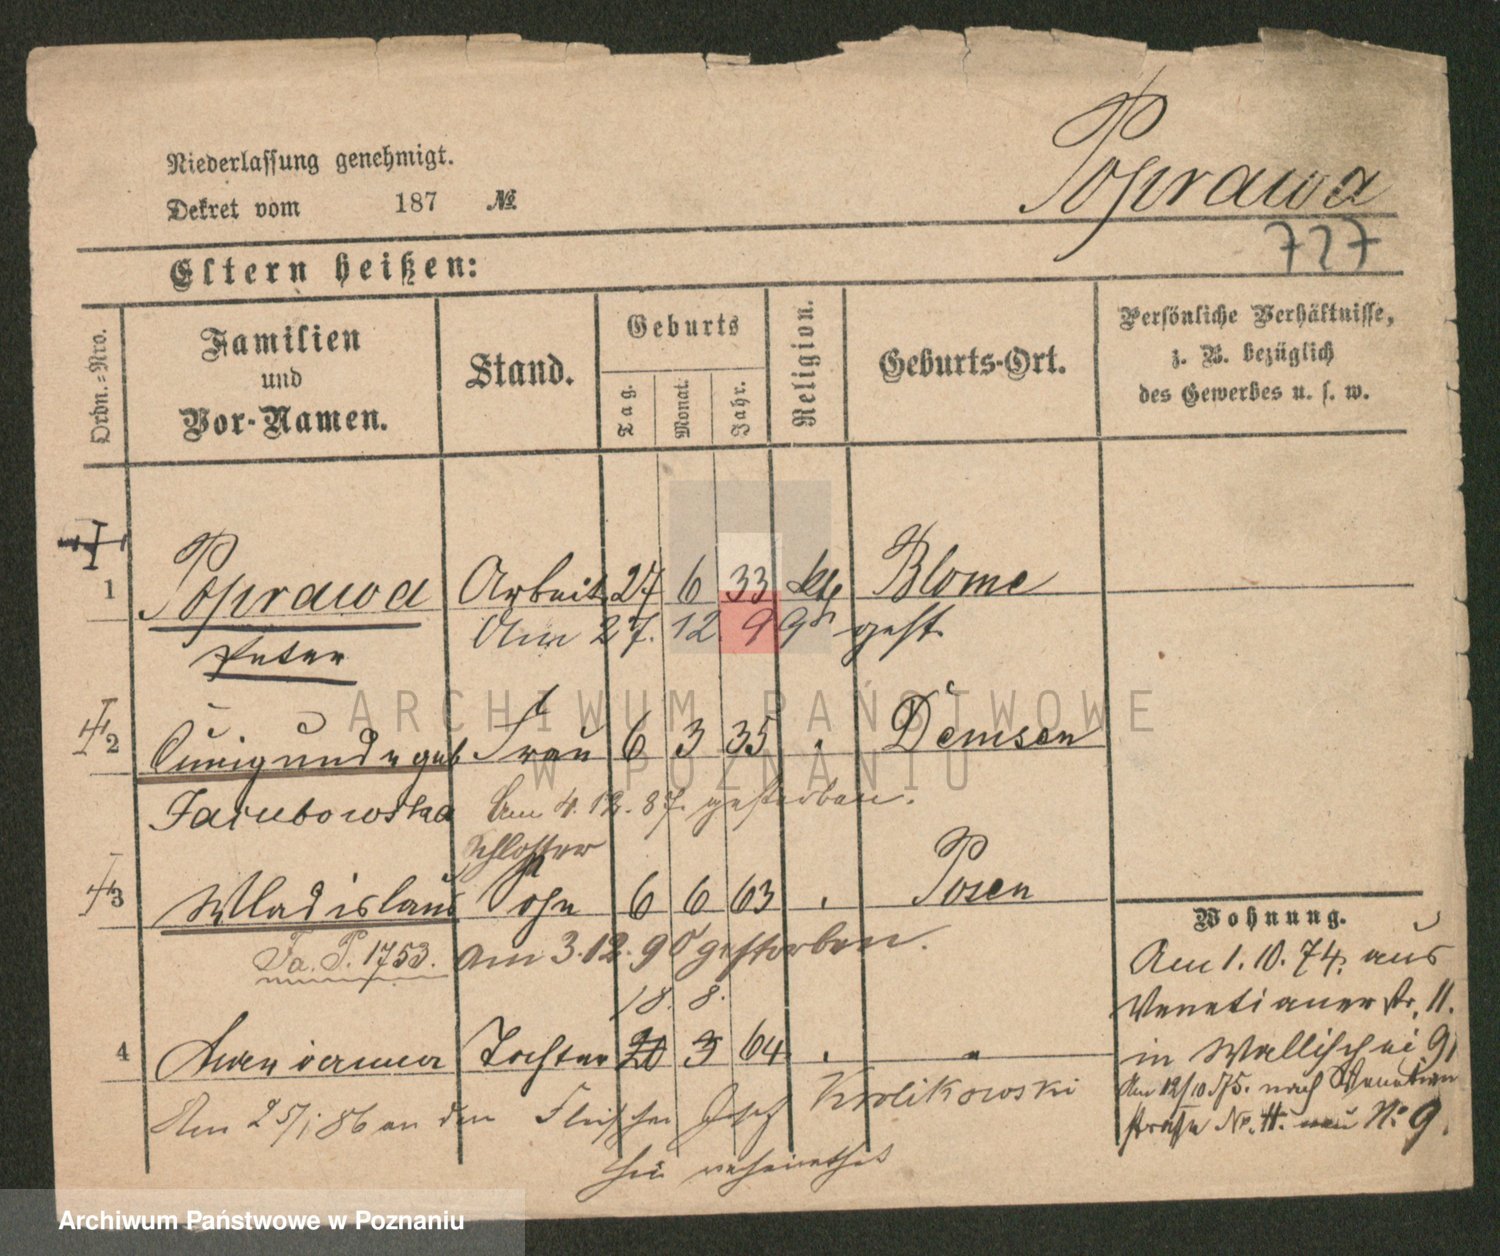 Niederlassung genehmigt.
Dekret vom 187 №
Poprawa
727
Eltern heißen:
Ordn.-Nro.
Familien
und
Vor-Namen.
Stand.
Geburts
Tag.
Monat.
Jahr.
Religion.
Geburts-Ort.
Persönliche Verhältnisse,
z. B. bezüglich
des Gewerbes u. s. w.
1 Poprawa Arbeit. 27 6 33 kth Blome
Peter
Am 27. 12. 99 gest.
2 Cunigunde geb Frau 6 3 35 Demsen
Jakubowska
Am 4. 12. 87. gestorben.
Schlosser
3 Wladislaus Sohn 6 6 63 Posen
Fa. P. 1753.
Am 3. 12. 90 gestorben.
18. 8.
4 Marianna Tochter 20 3 64 "
Am 25/1 86 an den Fleischer Josef Krolikowski
hier verheirathet
Wohnung.
Am 1. 10. 74. aus
Venetianerstr. 11.
in Wallischei 91
Am 12/10 75. nach Venetian
straße Nr. 11. neu No 9.
ARCHIWUM PAŃSTWOWE
W POZNANIU
Archiwum Państwowe w Poznaniu